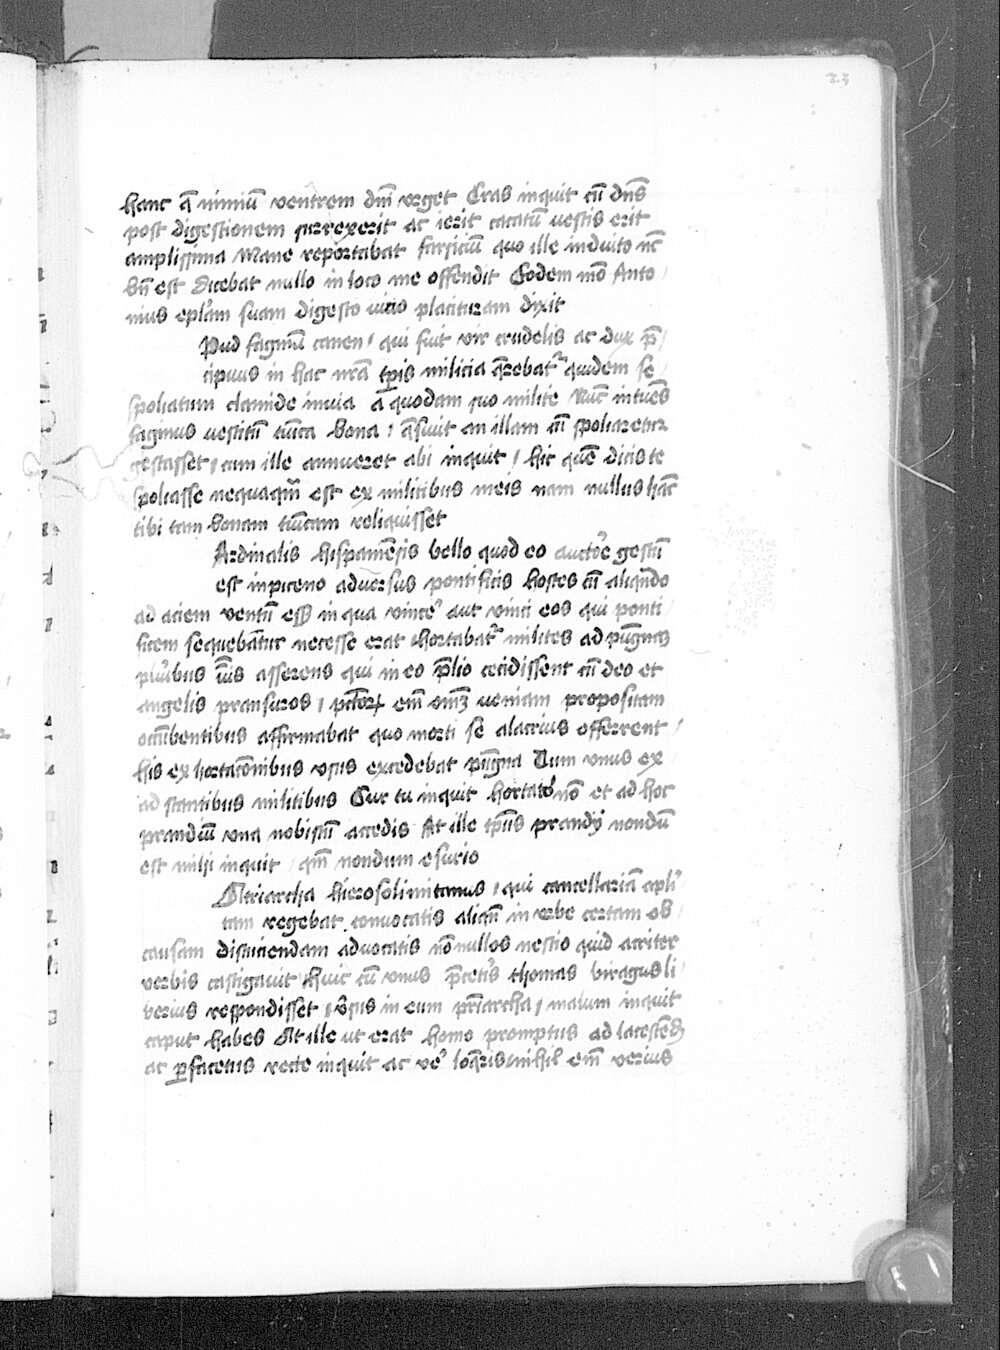 23
hanc q̄ nimiū ventrem dm̄ vrget Cras inquit cū dn̄s
post digestionem surrexerit ac ierit cacatū vestis erit
amplissima Mane reportabat farsiciū quo ille induto nc̄
bn̄ est dicebat nullo in loco me offendit Eodem mō Anto
nius epl̄am suam digesto vitio placituram dixit
Pud faginū canen / qui fuit vir crudelis ac dux p̄
cipuus in hac nr̄a tp̄is militia q̄rebatr̄ quidem se
spoliatum clamide in via a quodam suo milite Nūc intuēs
faginus vestitū tūica bona / q̄siuit an illam cū spoliaretur
gestasset / cum ille annueret abi inquit / hic quē dicis te
spoliasse nequaqm̄ est ex militibus meis nam nullus hāc
tibi tam bonam tūicam reliquisset
Ardinalis hispanēsis bello quod eo auctoē gestū
est in piceno aduersus pontificis hostes cū aliqn̄do
ad aciem ventū ess̄ in qua vincē aut vinci eos qui ponti
ficem sequebātur necesse erat hortabatr̄ milites ad pūgnas
plīibus asserens qui in eo p̄lio cecidissent cū deo et
angelis pransuros / pctōrꝝ em̄ om̄ꝫ veniam propositam
occūbentibus affirmabat quo morti se alacrius offerrent /
his exhortatōnibus vsus excedebat pūgna Tum vnus ex
ad stantibus militibus Cur tu inquit hortatō nō et ad hoc
prandiū vna nobiscū accedis At ille tp̄us prandij nondū
est mihi inquit / qm̄ nondum esurio
Atriarcha hierosolimitanus / qui cancellariā apl̄i
cam regebat conuocatis aliqn̄ in vrbe certam ob
causam distuiendam aduocatis nō nullos nescio quid acriter
verbis castigauit huic cū vnus p̄ cetīs thomas biragus li
berius respondisset / v̄sus in eum pr̄iarcha / malum inquit
caput habes At ille ut erat homo promptus ad lacescēdū
ac ꝑfacetus recte inquit ac vē loq̄ris / nihil em̄ verius